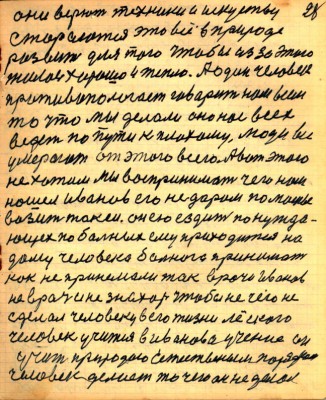 28
они верют техники и искуству
стораются это всё в природе
развить для того чтобы из за этого
жилось хорошо и тепло. А один человек
противополагает говарит нам всем
то что мы делали оно нас всех
ведет по пути к плохому, люди все
умерают от этого всего. А вот этого
не хотим мы воспринимат чего наш
нашел иванов его не даром по машне
возит такси. он ею ездит по нужда-
ющех по балных ему приходится на
дому человека балного принимат
как не принемали так врачи иванов
не врач и не знахор чтобы не чего не
сделал человеку в его жизни лёхкого
человек учится в иванова учение он
учит природаю естественым порядком
человек делает то чего он не делал